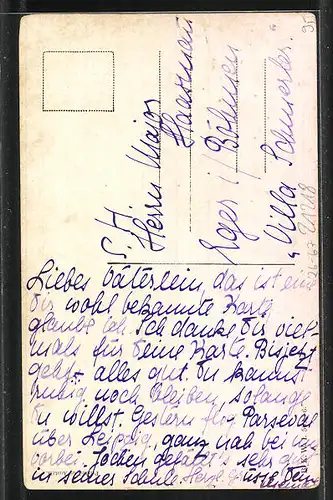 S. H.
Herrn Major
Haarmann
Eger i/Böhmen
"Villa Schmerler.
Liebes Väterlein, das ist eine
dir wohl bekannte Karte
glaube ich. Ich danke dir viel-
mals für deine Karte. Bis jetzt
geht alles gut. du kannst
ruhig noch bleiben, solange
du willst. Gestern flog Parseval
über Leipzig, ganz nah bei uns
vorbei. Jochen gefällt's sehr gut
in seiner Schule. Herzl. Grüsse dein
95